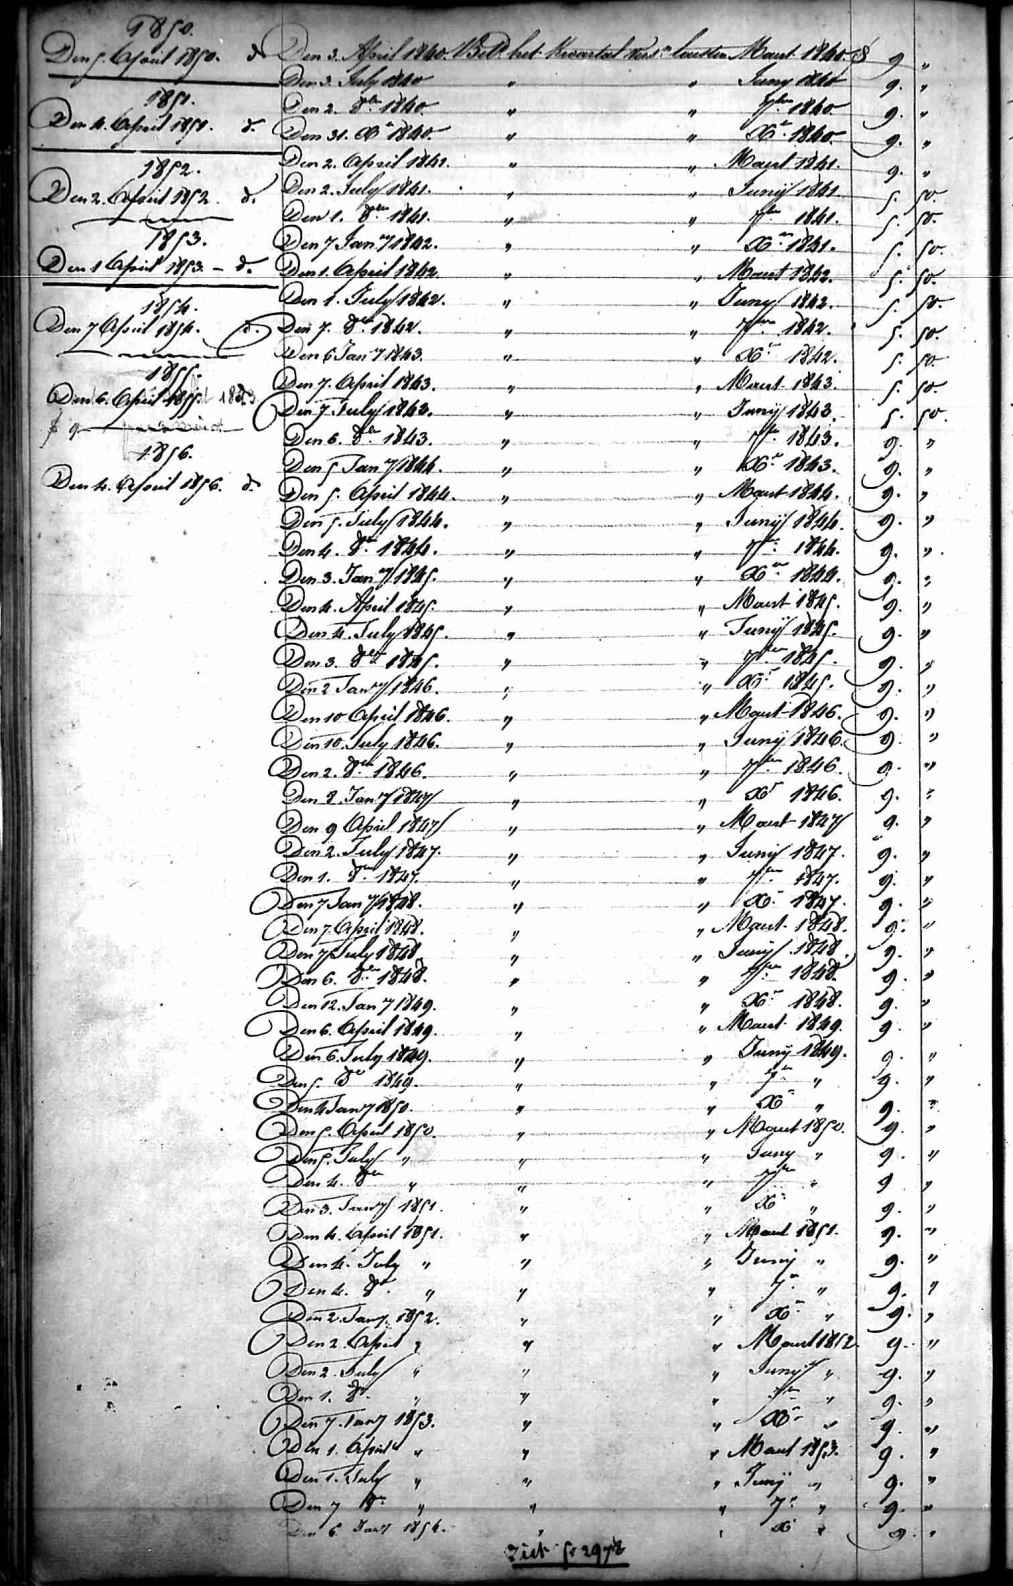 1850.
Den 5. April 1850. d.
1851.
Den 4. April 1851. d.
1852.
Den 2. April 1852. d.
1853.
Den 1 April 1853. - d.
1854.
Den 7 April 1854. d.
1855.
Den 6. April 1855.
1856.
Den 4. April 1856. d.
Den 3. April 1840. Bet. het Kwartaal laatsten Maart 1840. 9 "
Den 3. July 1840 " " Juny 1840 9. "
Den 2. 8ber 1840. " " 7ber 1840. 9. "
Den 31. Xr 1840. " " Xr. 1840. 9. "
Den 2. April 1841. " " Maart 1841. 9. "
Den 2. July 1841. " " Junij 1841 5. 50.
Den 1. 8ber 1841. " " 7ber 1841. 5. 50.
Den 7 Jany 1842. " " Xr 1841. 5. 50.
Den 1. April 1842. " " Maart 1842. 5. 50.
Den 1. July 1842. " " Juny 1842. 5. 50.
Den 7. 8ber 1842. " " 7ber 1842. 5. 50.
Den 6 Jany 1843. " " Xr 1842. 5. 50.
Den 7. April 1843. " " Maart 1843. 5. 50.
Den 7. July 1843. " " Junij 1843. 5. 50.
Den 6. 8br 1843. " " 7br 1843. 9. "
Den 5 Jany 1844. " " Xr 1843. 9. "
Den 5. April 1844. " " Maart 1844. 9. "
Den 5. July 1844. " " Junij 1844. 9. "
Den 4. 8br 1844. " " 7br 1844. 9. "
Den 3. Jany 1845. " " Xr 1844. 9. "
Den 4. April 1845. " " Maart 1845. 9. "
Den 4. July 1845. " " Junij 1845. 9. "
Den 3. 8ber 1845. " " 7ber 1845. 9. "
Den 2 Jany 1846. " " Xr 1845. 9. "
Den 10 April 1846. " " Maart 1846. 9. "
Den 10. July 1846. " " Junij 1846. 9. "
Den 2. 8ber 1846. " " 7ber 1846. 9. "
Den 8. Jany 1847 " " Xr 1846. 9. "
Den 9 April 1847 " " Maart 1847 9. "
Den 2. July 1847. " " Junij 1847. 9. "
Den 1. 8br 1847. " " 7ber 1847. 9. "
Den 7 Jany 1848. " " Xr 1847. 9. "
Den 7. April 1848. " " Maart 1848. 9. "
Den 7 July 1848. " " Junij 1848. 9. "
Den 6. 8ber 1848. " " 7ber 1848. 9. "
Den 12. Jany 1849. " " Xr 1848. 9. "
Den 6. April 1849. " " Maart 1849. 9. "
Den 6. July 1849. " " Junij 1849. 9. "
Den 5. 8r 1849. " " 7r " 9. "
Den 4 Jany 1850. " " Xr " 9. "
Den 5. April 1850. " " Maart 1850. 9. "
Den 5. July " " " Juny " 9. "
Den 4. 8ber " " " 7ber " 9 "
Den 3. Jany 1851. " " Xr " 9. "
Den 4. April 1851. " " Maart 1851. 9. "
Den 4. July " " " Junij " 9. "
Den 4. 8r. " " " 7r " 9. "
Den 2. Jany. 1852. " " Xr " 9. "
Den 2. April " " " Maart 1852 9. "
Den 2. July " " " Junij " 9. "
Den 1. 8r. " " " 7ber " 9. "
Den 7. Jany 1853. " " Xr " 9. "
Den 1. April " " " Maart 1853. 9. "
Den 1. July " " " Junij " 9. "
Den 7 8r " " " 7r " 9. "
Den 6 Jany 1854. " " Xr " 9. "